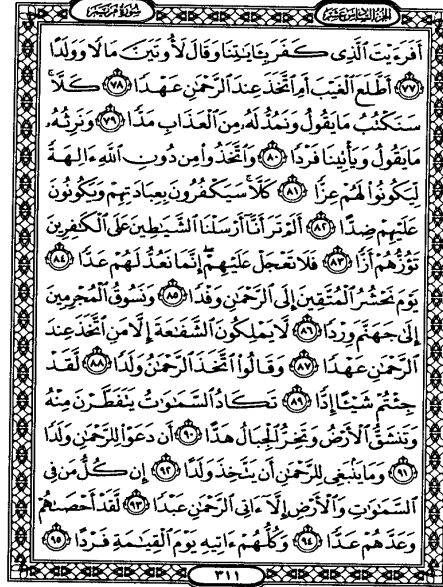 سُورَةُ مَرْيَمَ
الجزء السادس عشر
أَفَرَءَيْتَ ٱلَّذِى كَفَرَ بِـَٔايَـٰتِنَا وَقَالَ لَأُوتَيَنَّ مَالًا وَوَلَدًا
﴿٧٧﴾ أَطَّلَعَ ٱلْغَيْبَ أَمِ ٱتَّخَذَ عِندَ ٱلرَّحْمَـٰنِ عَهْدًا ﴿٧٨﴾ كَلَّا ۚ
سَنَكْتُبُ مَا يَقُولُ وَنَمُدُّ لَهُۥ مِنَ ٱلْعَذَابِ مَدًّا ﴿٧٩﴾ وَنَرِثُهُۥ
مَا يَقُولُ وَيَأْتِينَا فَرْدًا ﴿٨٠﴾ وَٱتَّخَذُوا۟ مِن دُونِ ٱللَّهِ ءَالِهَةً
لِّيَكُونُوا۟ لَهُمْ عِزًّا ﴿٨١﴾ كَلَّا ۚ سَيَكْفُرُونَ بِعِبَادَتِهِمْ وَيَكُونُونَ
عَلَيْهِمْ ضِدًّا ﴿٨٢﴾ أَلَمْ تَرَ أَنَّآ أَرْسَلْنَا ٱلشَّيَـٰطِينَ عَلَى ٱلْكَـٰفِرِينَ
تَؤُزُّهُمْ أَزًّا ﴿٨٣﴾ فَلَا تَعْجَلْ عَلَيْهِمْ ۖ إِنَّمَا نَعُدُّ لَهُمْ عَدًّا ﴿٨٤﴾
يَوْمَ نَحْشُرُ ٱلْمُتَّقِينَ إِلَى ٱلرَّحْمَـٰنِ وَفْدًا ﴿٨٥﴾ وَنَسُوقُ ٱلْمُجْرِمِينَ
إِلَىٰ جَهَنَّمَ وِرْدًا ﴿٨٦﴾ لَّا يَمْلِكُونَ ٱلشَّفَـٰعَةَ إِلَّا مَنِ ٱتَّخَذَ عِندَ
ٱلرَّحْمَـٰنِ عَهْدًا ﴿٨٧﴾ وَقَالُوا۟ ٱتَّخَذَ ٱلرَّحْمَـٰنُ وَلَدًا ﴿٨٨﴾ لَّقَدْ
جِئْتُمْ شَيْـًٔا إِدًّا ﴿٨٩﴾ تَكَادُ ٱلسَّمَـٰوَٰتُ يَتَفَطَّرْنَ مِنْهُ
وَتَنشَقُّ ٱلْأَرْضُ وَتَخِرُّ ٱلْجِبَالُ هَدًّا ﴿٩٠﴾ أَن دَعَوْا۟ لِلرَّحْمَـٰنِ وَلَدًا
﴿٩١﴾ وَمَا يَنۢبَغِى لِلرَّحْمَـٰنِ أَن يَتَّخِذَ وَلَدًا ﴿٩٢﴾ إِن كُلُّ مَن فِى
ٱلسَّمَـٰوَٰتِ وَٱلْأَرْضِ إِلَّآ ءَاتِى ٱلرَّحْمَـٰنِ عَبْدًا ﴿٩٣﴾ لَّقَدْ أَحْصَىٰهُمْ
وَعَدَّهُمْ عَدًّا ﴿٩٤﴾ وَكُلُّهُمْ ءَاتِيهِ يَوْمَ ٱلْقِيَـٰمَةِ فَرْدًا ﴿٩٥﴾
٣١١